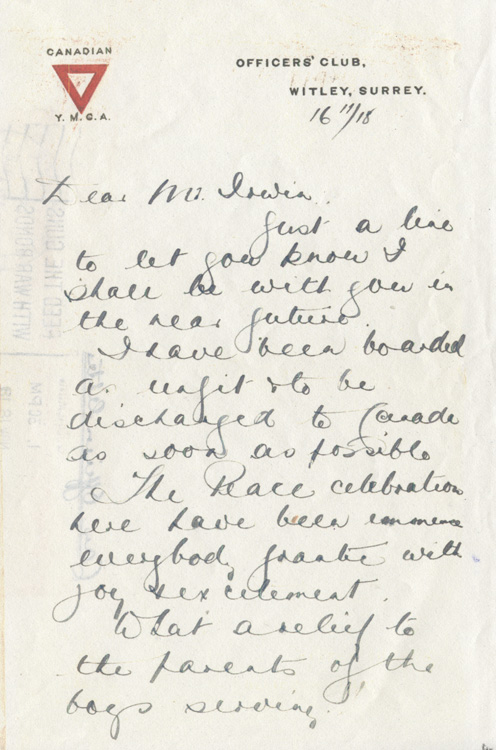 CANADIAN
Y.M.C.A.
OFFICERS' CLUB,
WITLEY, SURREY.
16 11/18
Dear Mr. Irwin.
Just a line
to let you know I
shall be with you in
the near future.
I have been boarded
as unfit & to be
discharged to Canada
as soon as possible
The Peace celebrations
here have been immense
everybody frantic with
joy & excitement.
What a relief to
the parents of the
boys serving.
WITH WAR BONDS
FEED THE GUNS